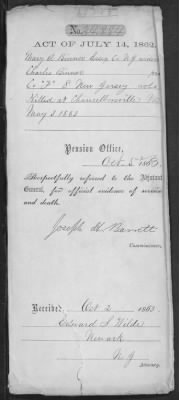 ACT OF JULY 14, 1862.
Mary A. Essex Co. N.J.
Charles
Co "F" 8 New Jersey vols
Killed at Chancellorsville Va
May 3 1863
Pension Office,
Oct 5 1863.
Respectfully referred to the Adjutant
General, for official evidence of service
and death.
Joseph H. Barrett
Commissioner.
Received Oct 2 1863
Edward L. Wilde
Newark
N J
Attorney.